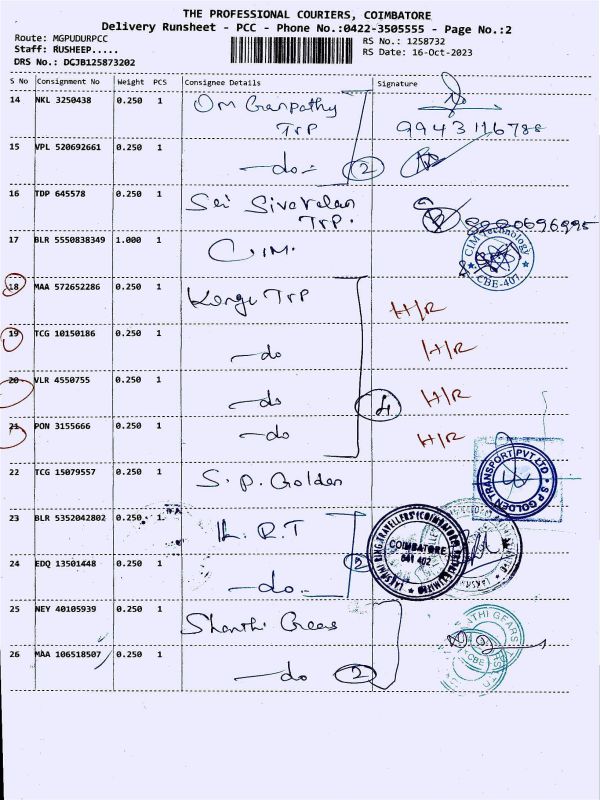 THE PROFESSIONAL COURIERS, COIMBATORE
Delivery Runsheet - PCC - Phone No.:0422-3505555 - Page No.:2
Route: MGPUDURPCC
RS No.: 1258732
Staff: RUSHEEP.....
RS Date: 16-Oct-2023
DRS No.: DGJB125873202
S No Consignment No Weight PCS Consignee Details Signature
14 NKL 3250438 0.250 1 Om Ganpathy
Trp 9943116788
15 VPL 520692661 0.250 1 -do- 2
16 TDP 645578 0.250 1 Sai Sivabalan
Trp.
17 BLR 5550838349 1.000 1 CIM.
CIM Technology CBE-407
18 MAA 572652286 0.250 1 Kongu Trp H/R
19 TCG 10150186 0.250 1 -do H/R
20 VLR 4550755 0.250 1 -do 4 H/R
21 PON 3155666 0.250 1 -do H/R
22 TCG 15079557 0.250 1 S.P. Golden
S P GOLDEN TRANSPORT PVT LTD
23 BLR 5352042802 0.250 1 R.T
COIMBATORE
641 402
24 EDQ 13501448 0.250 1 -do- 2
25 NEY 40105939 0.250 1 Shanthi Gears
SHANTHI GEARS
26 MAA 106518507 0.250 1 -do 2
CBE